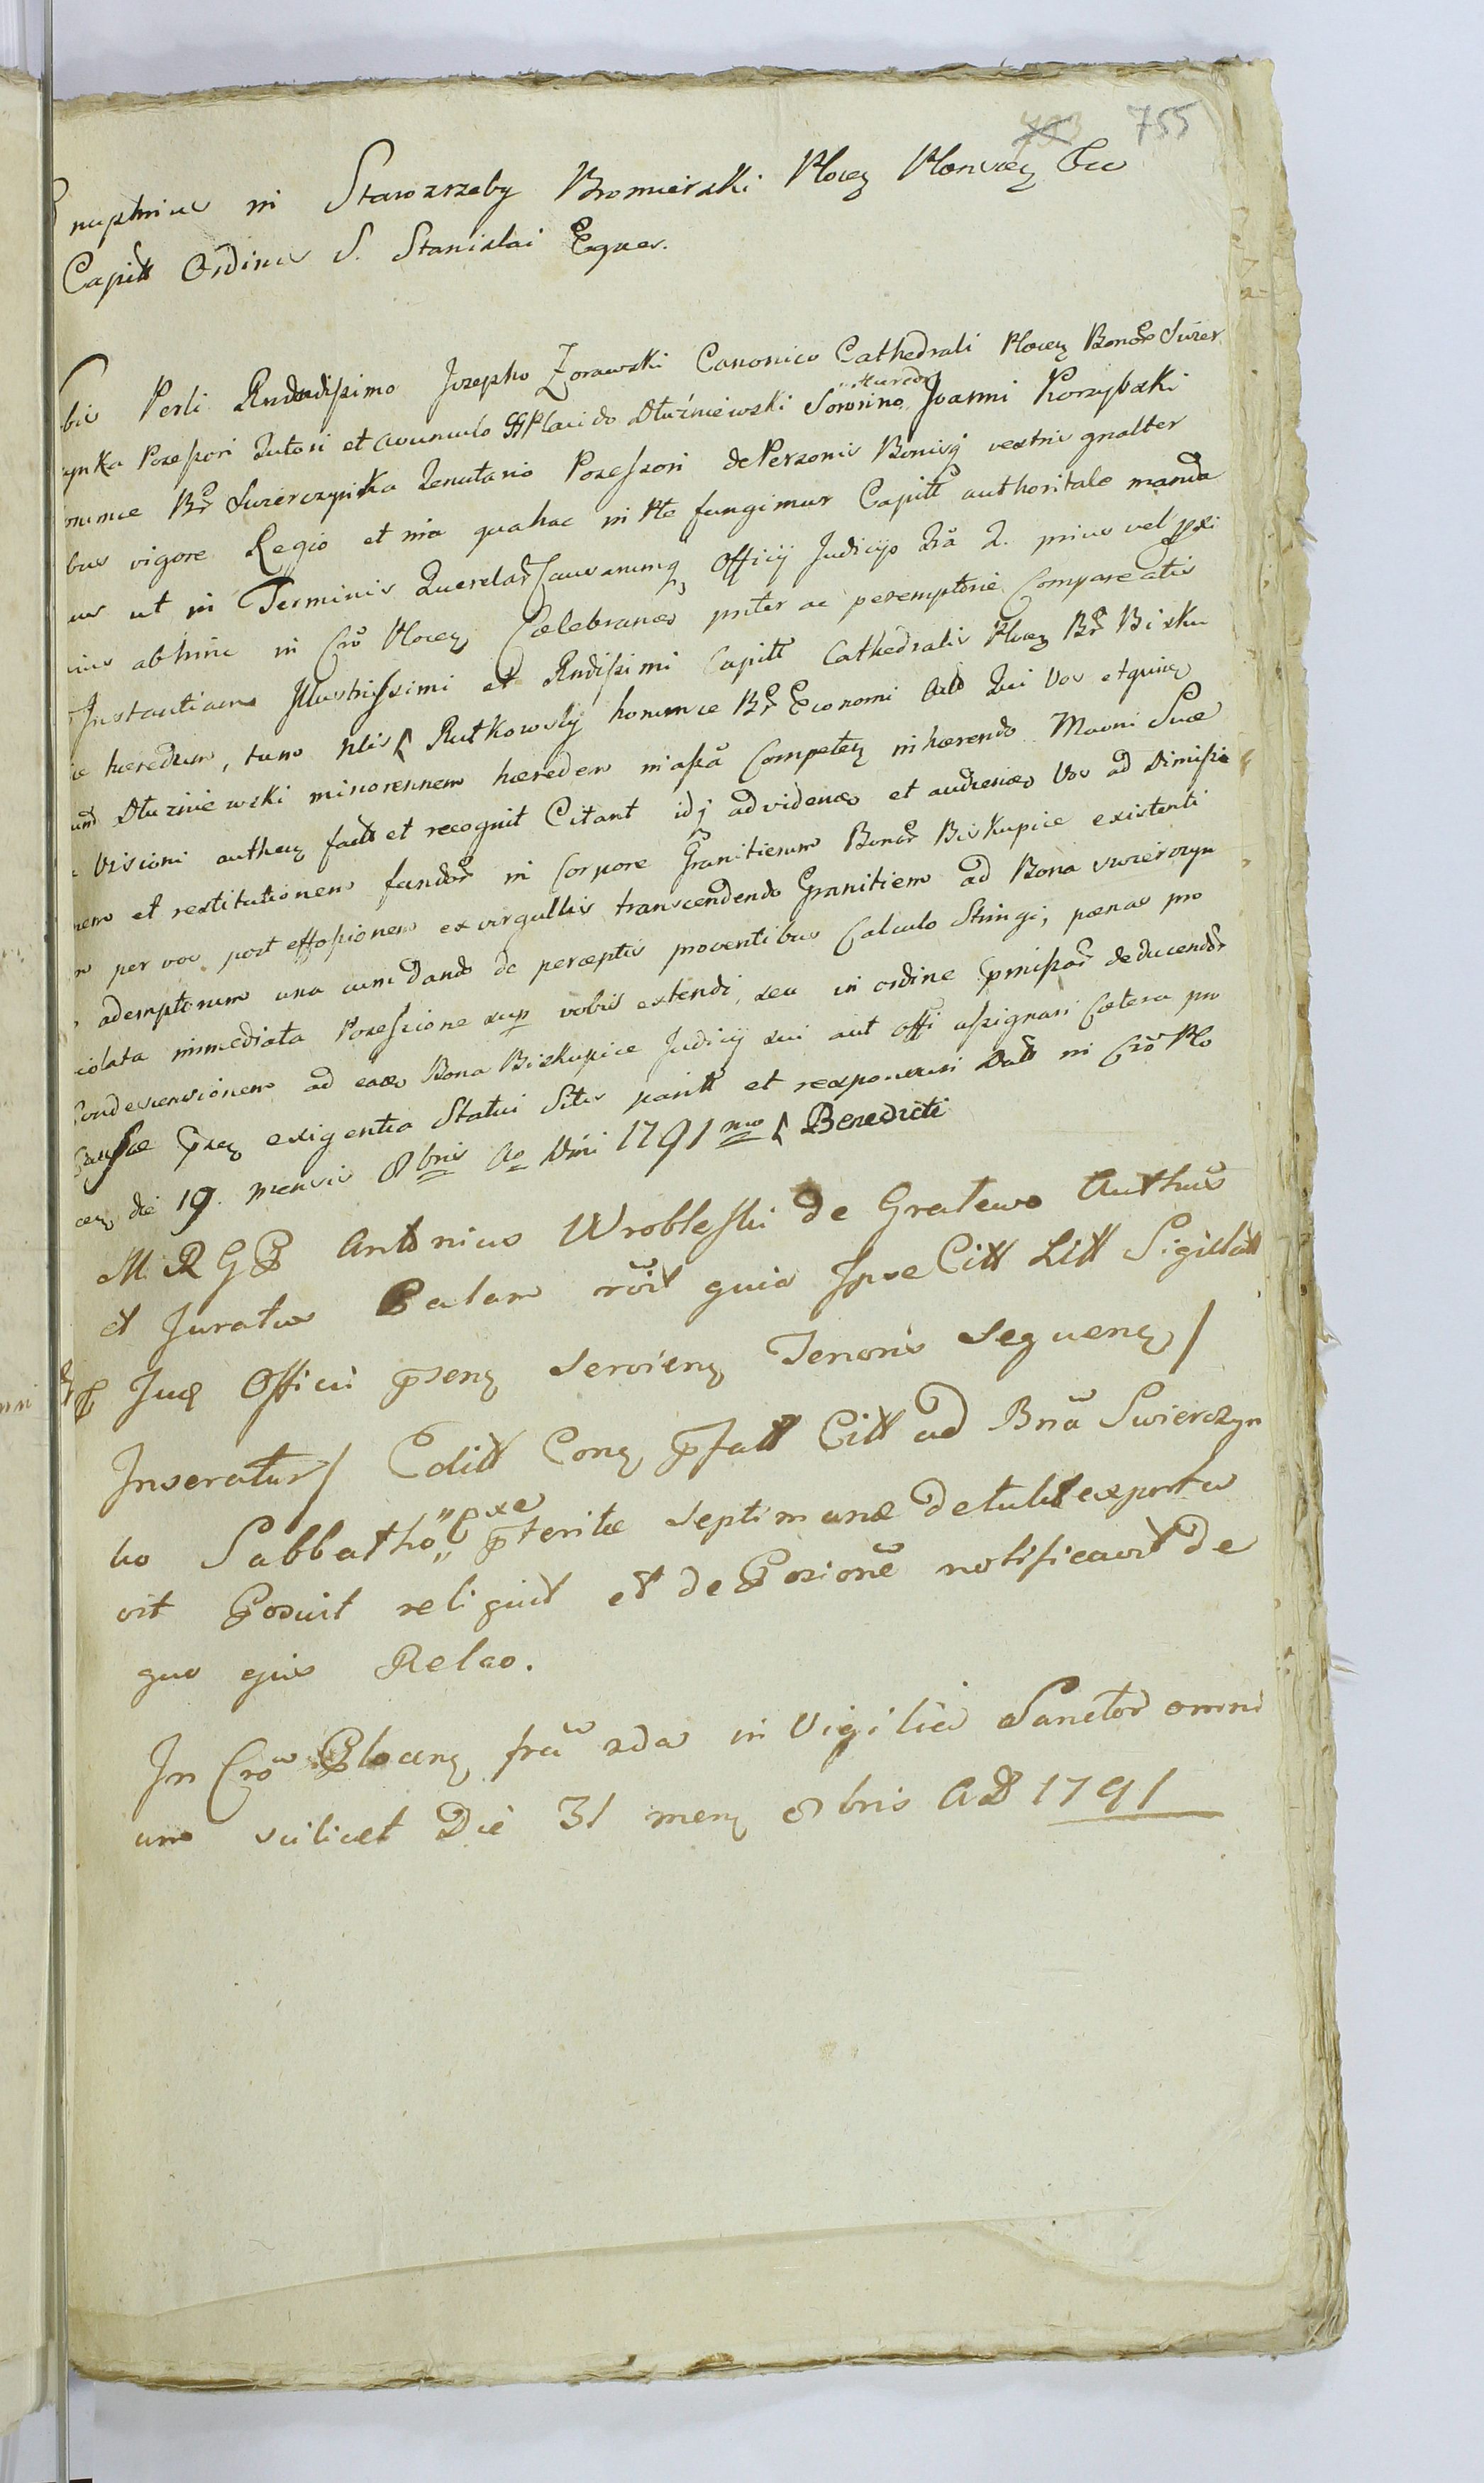 755
nuphrius in Starozrzeby Bromierski Plocen Plonscen Etc
Capitt Ordinis S. Stanislai Eques.
bis Perli Rndndissimo Josepho Zorawski Canonico Cathedrali Plocen Bonor Swier
zynka Possessori Tutori et avunculo GPlacido Dłużniewski Sororino Joanni Korzybski
orumce Br Swierczynka Tenutario Possessori de Personis Bonisq vestris gnalter
bus vigore Regio et nia qua hac in Pte fungimur Capitt authoritate manda
us ut in Terminis Querelar Causarumq Officij Judicijs Fria 2. prius vel pxi
mis abhinc in Cro Plocen Celebrandis pnter ac peremptorie Compareatis
Instantiam Illustrissimi et Rndissimi Capitt Cathedralis Plocen Br Bisku
ce hæredum, tum Nlis Rutkowski horumce Br Economi Act Qui Vos et quemq
und Dłuzniewski minorennem hæredem in assa Competen inhærendo Mavni Suæ
Visioni authen factt et recognit Citant idq ad videndum et audiendum Vos ad dimissio
nem et restitutionem fundor in Corpore Granitierum Bonor Biskupice existenti
m per vos post effossionem ex virgultis transcendendo Granitiem ad Bona Swierczyn
ademptorum una cum dando de perceptis proventibus Calculo Stringi, pænas pro
violata immediata Possessione sup vobis extendi, seu in ordine pmissor deducendor
Condescensionem ad eadem Bona Biskupice Judicij sui aut Offi assignari Cætera pro
Causæ pnen exigentia Statui Sitis paritt et responsuri Datt in Cro Plo
cen die 19. mensis 8bris Ao Dni 1791mo Benedicti
M R G P Antonius Wrobleski de Gralewo Authus
et Juratus Palam roit quia Ipse Citt Litt Sigillatt
Jud Officii psens serviens Tenoris Sequens /
Inseratur / Editt Conq pfatt Citt ad Bna Swierczyn
ko Sabbatho pxe pteritæ septimanæ detulit exporta
vit Posuit reliquit et de Posione notificavit de
quo ejus Relao.
In Cro Plocen fria 2da in Vigilia Sanctor omni
um scilicet Die 31 mens 8bris AD 1791